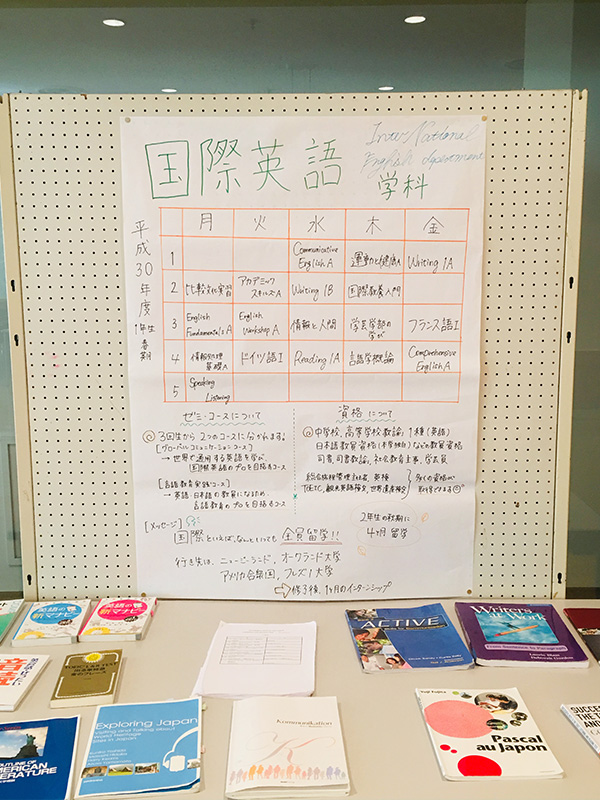 国際英語
International
English department
学科
平成30年度
1年生
春期
月 火 水 木 金
1 Communicative English A 運動と健康A Writing 1A
2 比較文化実習 アカデミックスキルズA Writing 1B 国際教養入門
3 English Fundamentals A English Workshop A 情報と人間 学芸学部の学び フランス語I
4 情報処理基礎A ドイツ語I Reading 1A 言語学概論 Comprehensive English A
5 Speaking Listening
ゼミ・コースについて
3回生から2つのコースに分かれます。
[グローバルコミュニケーションコース]
→ 世界で通用する英語を学び、
国際英語のプロを目指すコース
[言語教育実践コース]
→ 英語・日本語の教員になるため、
言語教育のプロを目指すコース
資格について
中学校、高等学校教諭 1種(英語)
日本語教員資格(本学独自)などの教員資格
司書、司書教諭、社会教育主事、学芸員
総合旅程管理主任者、英検
TOEIC、観光英語検定、世界遺産検定
多くの資格が
取得できます
[メッセージ]
国際といえば、なんといっても 全員留学!!
2年生の秋期に
4ヶ月 留学
行き先は、ニュージーランド、オークランド大学
アメリカ合衆国、フレズノ大学
修了後、1ヶ月のインターンシップ
英語の
新マナビー
英語の
新マナビー
TOEIC L&R TEST
金のフレーズ
OUTLINE OF
AMERICAN
LITERATURE
Exploring Japan
Kommunikation
ACTIVE
Writers
at Work
From Sentence to Paragraph
Pascal
au Japon
SUCCESS